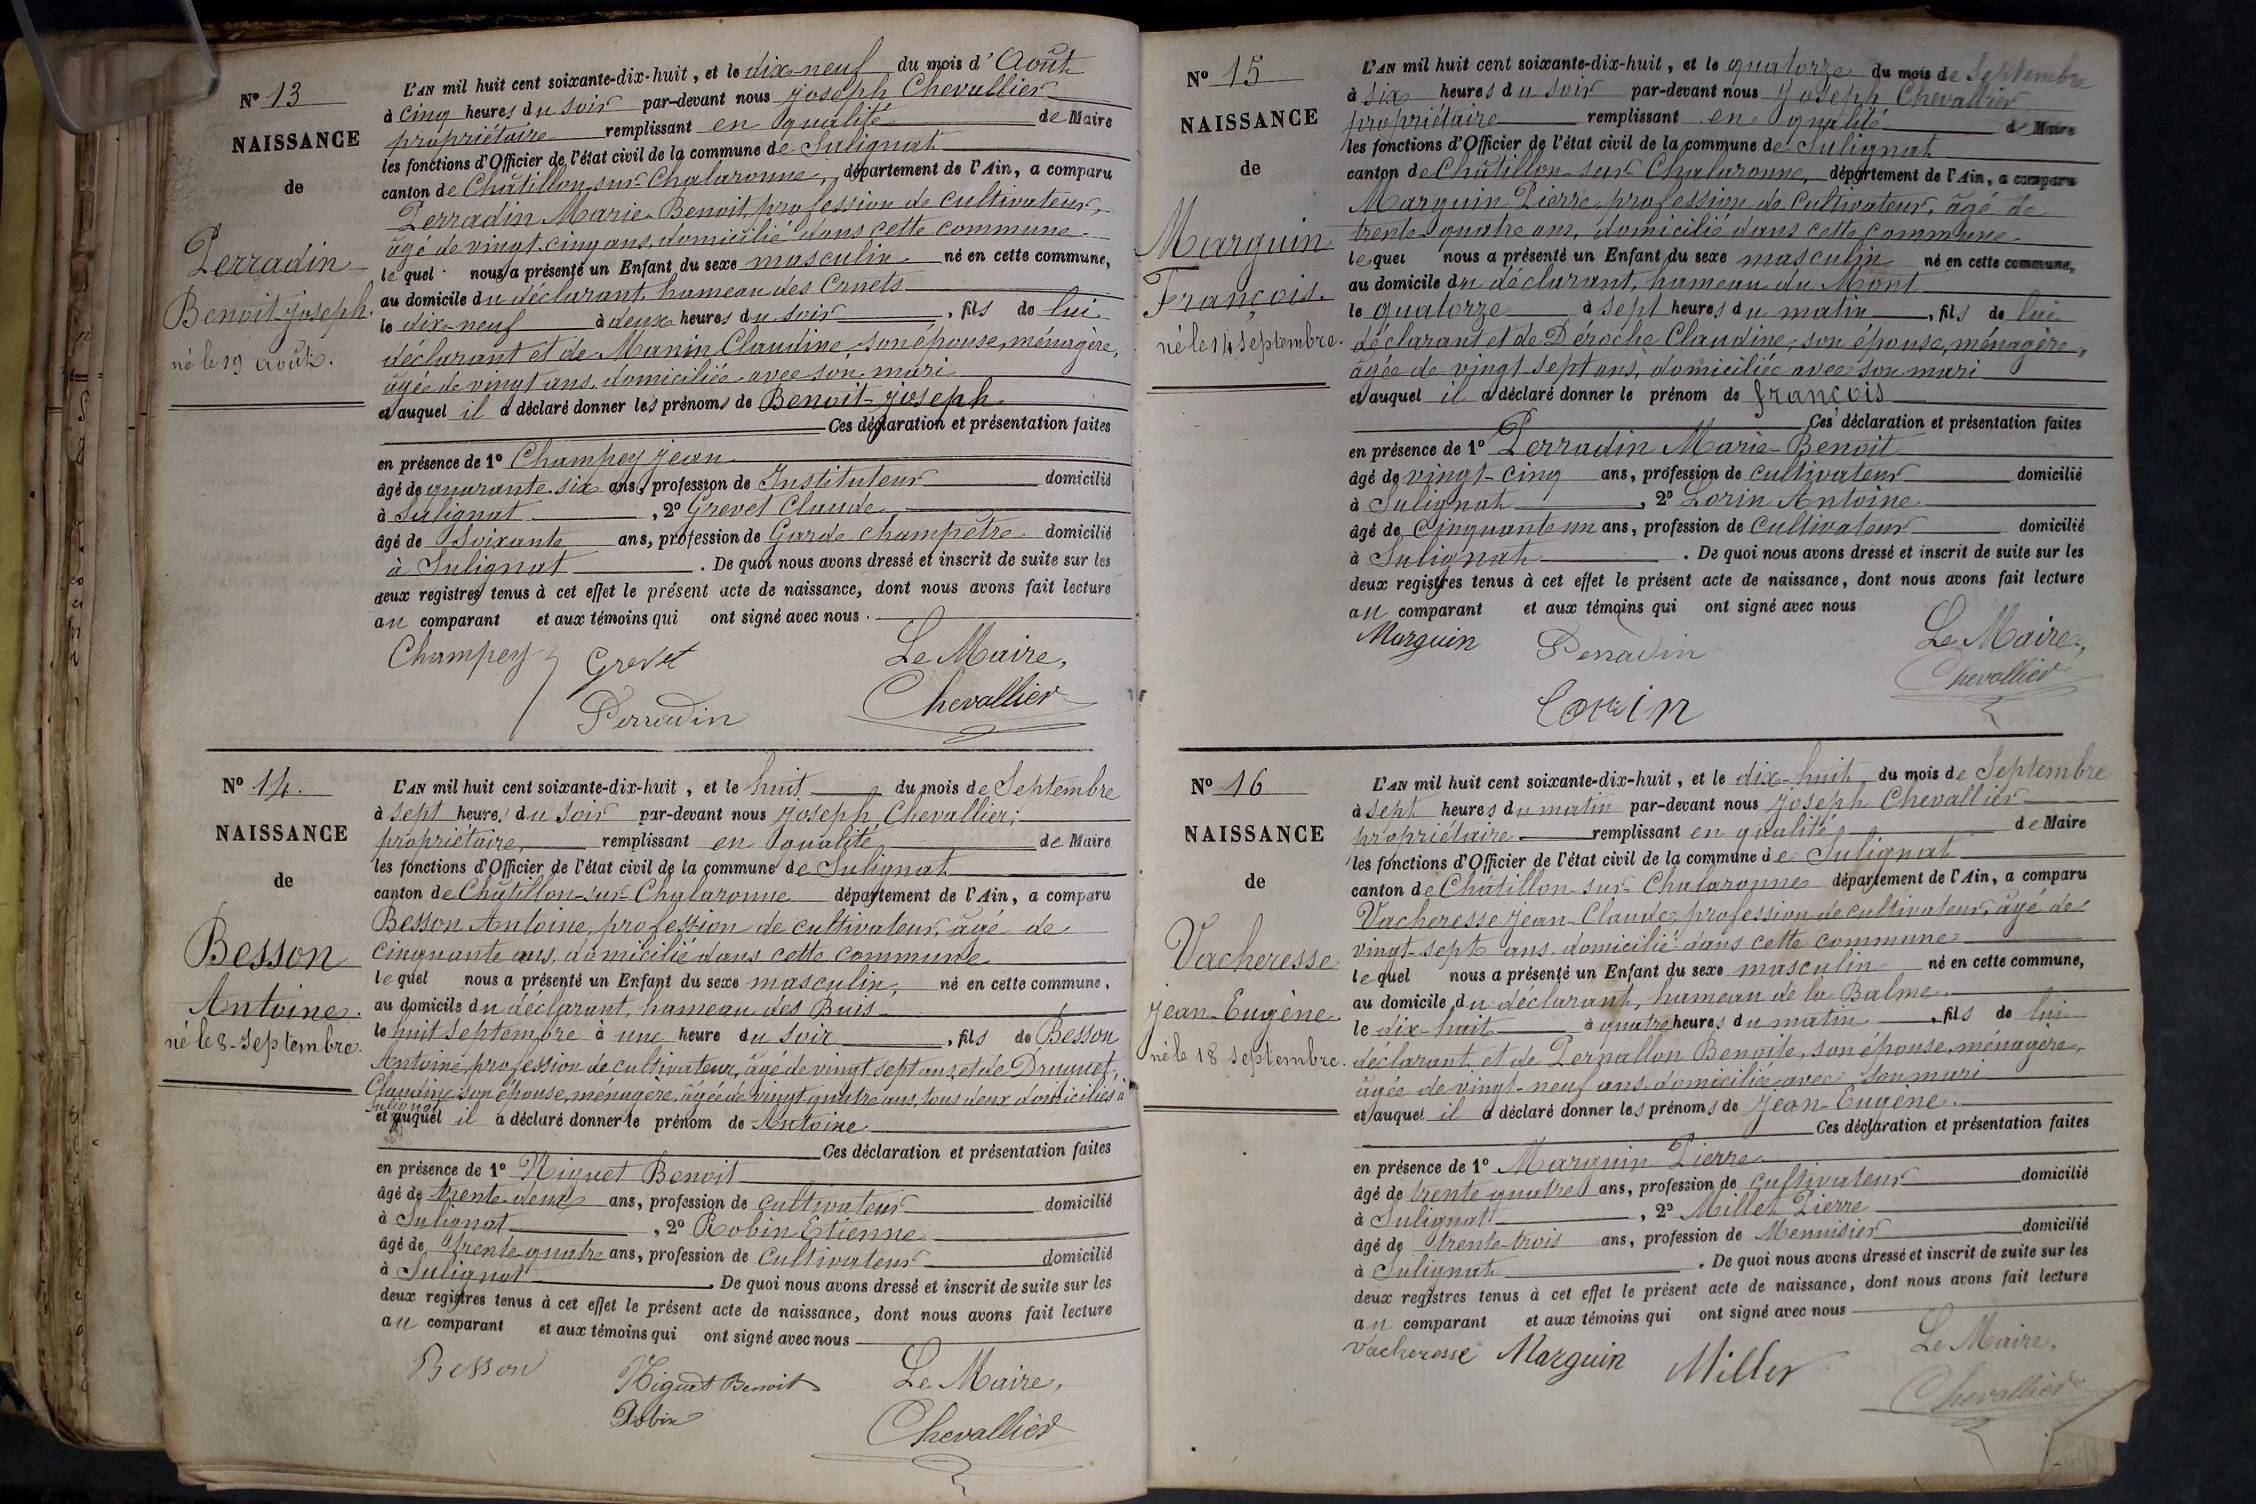 N° 13
NAISSANCE
de
Perradin
Benoit-Joseph.
né le 19 août.
L'AN mil huit cent soixante-dix-huit, et le dix-neuf du mois d'Août
à cinq heures du soir par-devant nous Joseph Chevallier
propriétaire remplissant en qualité de Maire
les fonctions d'Officier de l'état civil de la commune de Sulignat
canton de Châtillon-sur-Chalaronne, département de l'Ain, a comparu
Perradin Marie-Benoit, profession de cultivateur,
âgé de vingt-cinq ans, domicilié dans cette commune
lequel nous a présenté un Enfant du sexe masculin né en cette commune,
au domicile du déclarant, hameau des Cruets
le dix-neuf à deux heures du soir, fils de lui
déclarant et de Manin Claudine, son épouse, ménagère,
âgée de vingt ans, domiciliée avec son mari
et auquel il a déclaré donner les prénoms de Benoit-Joseph
Ces déclaration et présentation faites
en présence de 1° Champey Jean
âgé de quarante-six ans, profession de Instituteur domicilié
à Sulignat, 2° Grevet Claude
âgé de soixante ans, profession de Garde champêtre domicilié
à Sulignat. De quoi nous avons dressé et inscrit de suite sur les
deux registres tenus à cet effet le présent acte de naissance, dont nous avons fait lecture
au comparant et aux témoins qui ont signé avec nous.
Champey Grevet Le Maire,
Perradin Chevallier
N° 14.
NAISSANCE
de
Besson
Antoine.
né le 8 Septembre.
L'AN mil huit cent soixante-dix-huit, et le huit du mois de Septembre
à sept heures du soir par-devant nous Joseph Chevallier,
propriétaire, remplissant en qualité de Maire
les fonctions d'Officier de l'état civil de la commune de Sulignat
canton de Châtillon-sur-Chalaronne département de l'Ain, a comparu
Besson Antoine, profession de cultivateur, âgé de
cinquante ans, domicilié dans cette commune
lequel nous a présenté un Enfant du sexe masculin, né en cette commune,
au domicile du déclarant, hameau des Buis
le huit septembre à une heure du soir, fils de Besson
Antoine, profession de cultivateur, âgé de vingt sept ans, et de Druguet,
Claudine son épouse, ménagère, âgée de vingt quatre ans, tous deux domiciliés à
Sulignat
et auquel il a déclaré donner le prénom de Antoine
Ces déclaration et présentation faites
en présence de 1° Niguet Benoit
âgé de trente-deux ans, profession de cultivateur domicilié
à Sulignat, 2° Robin Etienne
âgé de trente-quatre ans, profession de Cultivateur domicilié
à Sulignat. De quoi nous avons dressé et inscrit de suite sur les
deux registres tenus à cet effet le présent acte de naissance, dont nous avons fait lecture
au comparant et aux témoins qui ont signé avec nous
Besson Niguet Benoit Le Maire,
Robin Chevallier
N° 15
NAISSANCE
de
Marguin
François.
né le 14 Septembre.
L'AN mil huit cent soixante-dix-huit, et le quatorze du mois de Septembre
à six heures du soir par-devant nous Joseph Chevallier
propriétaire remplissant en qualité de Maire
les fonctions d'Officier de l'état civil de la commune de Sulignat
canton de Châtillon-sur-Chalaronne, département de l'Ain, a comparu
Marguin Pierre, profession de cultivateur, âgé de
trente-quatre ans, domicilié dans cette commune
lequel nous a présenté un Enfant du sexe masculin né en cette commune,
au domicile du déclarant, hameau du Mont
le quatorze à sept heures du matin, fils de lui
déclarant et de Déroche Claudine, son épouse, ménagère,
âgée de vingt sept ans, domiciliée avec son mari
et auquel il a déclaré donner le prénom de françois
Ces déclaration et présentation faites
en présence de 1° Perradin Marie-Benoit
âgé de vingt-cinq ans, profession de cultivateur domicilié
à Sulignat, 2° Lorin Antoine
âgé de cinquante un ans, profession de cultivateur domicilié
à Sulignat. De quoi nous avons dressé et inscrit de suite sur les
deux registres tenus à cet effet le présent acte de naissance, dont nous avons fait lecture
au comparant et aux témoins qui ont signé avec nous
Marguin Perradin Le Maire,
Lorin Chevallier
N° 16
NAISSANCE
de
Vacheresse
Jean-Eugène.
né le 18 septembre.
L'AN mil huit cent soixante-dix-huit, et le dix-huit du mois de Septembre
à sept heures du matin par-devant nous Joseph Chevallier
propriétaire remplissant en qualité de Maire
les fonctions d'Officier de l'état civil de la commune de Sulignat
canton de Châtillon-sur-Chalaronne département de l'Ain, a comparu
Vacheresse Jean-Claude, profession de cultivateur, âgé de
vingt-sept ans, domicilié dans cette commune
lequel nous a présenté un Enfant du sexe masculin né en cette commune,
au domicile du déclarant, hameau de la Balme
le dix-huit à quatre heures du matin, fils de lui
déclarant et de Pernallon Benoîte, son épouse, ménagère,
âgée de vingt-neuf ans, domiciliée avec son mari
et auquel il a déclaré donner les prénoms de Jean-Eugène.
Ces déclaration et présentation faites
en présence de 1° Marguin Pierre
âgé de trente quatre ans, profession de cultivateur domicilié
à Sulignat, 2° Millet Pierre
âgé de trente-trois ans, profession de Menuisier domicilié
à Sulignat. De quoi nous avons dressé et inscrit de suite sur les
deux registres tenus à cet effet le présent acte de naissance, dont nous avons fait lecture
au comparant et aux témoins qui ont signé avec nous
Vacheresse Marguin Millet Le Maire,
Chevallier